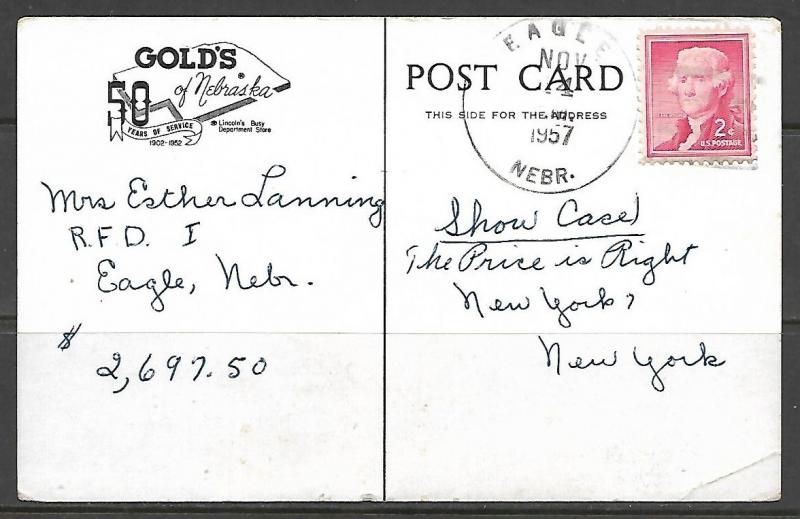 GOLD'S
of Nebraska
50
YEARS OF SERVICE
1902-1952
Lincoln's Busy
Department Store
Mrs Esther Lanning
R.F.D. I
Eagle, Nebr.
$
2,697.50
POST CARD
THIS SIDE FOR THE ADDRESS
EAGLE
NOV
1957
NEBR.
2¢
U.S. POSTAGE
Show Case
The Price is Right
New York,
New York